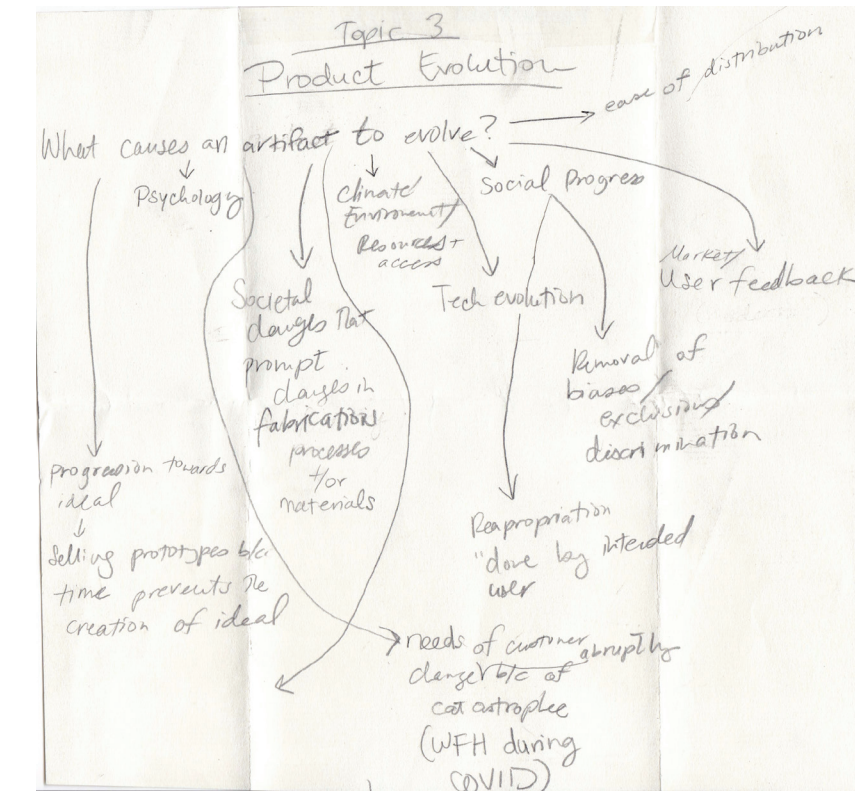 Topic 3
Product Evolution
ease of distribution
What causes an artifact to evolve?
Psychology
Climate/
Environment/
Resources +
access
Social Progress
Market/
User feedback
Societal
changes that
prompt
changes in
fabrication
processes
+/or
materials
Tech evolution
Removal of
biases/
exclusions/
discrimination
progression towards
ideal
Selling prototypes b/c
time prevents the
creation of ideal
Reapropriation
"done by intended
user
needs of customer abruptly
change b/c of
catastrophee
(WFH during
COVID)